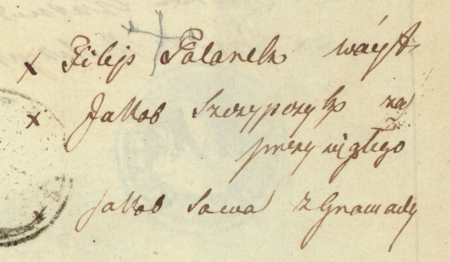 x Filip Palanek wáyt
x Jakob Szczypczyk za
przysięgłego
x Jakob Sawa z Gramady